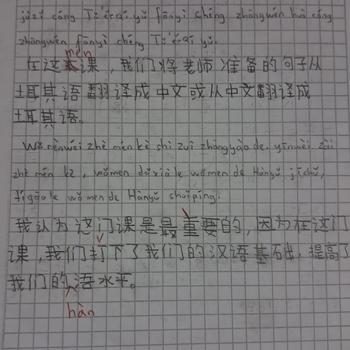 jùzi cóng Tǔ'ěrqí yǔ fānyì chéng zhōngwén huò cóng
zhōngwén fānyì chéng Tǔ'ěrqí yǔ.
mén
在这本课，我们将老师准备的句子从
土耳其语翻译成中文或从中文翻译成
土耳其语。
Wǒ rènwéi zhè mén kè shì zuì zhòngyào de, yīnwèi zài
zhè mén kè, wǒmen dǎ xià le wǒmen de Hànyǔ jīchǔ,
tígāo le wǒmen de Hànyǔ shuǐpíng.
我认为这门课是最重要的，因为在这门
课，我们打下了我们的汉语基础，提高了
我们的语水平。
hàn